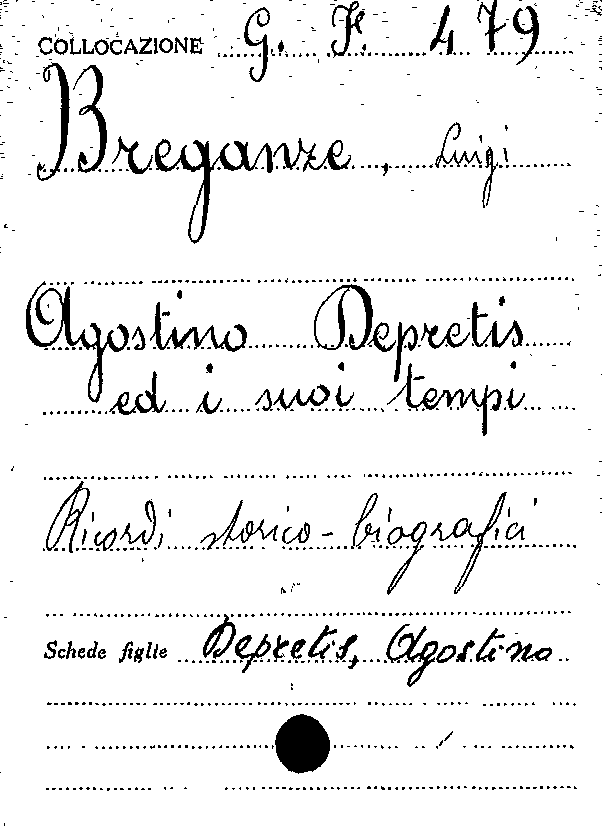 COLLOCAZIONE G. F. 479
Breganze, Luigi
Agostino Depretis
ed i suoi tempi
Ricordi storico-biografici
Schede figlie Depretis, Agostino